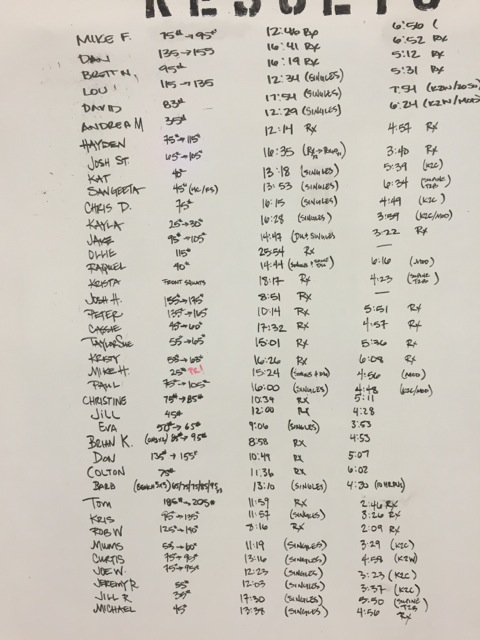 RESULTS
MIKE F. 75# → 95# 12:46 Rx 6:56
DAN 135 → 155 16:41 Rx 6:52 Rx
BRETT N. 95# 16:19 Rx 5:12 Rx
LOU 115 → 135 12:34 (SINGLES) 5:31 Rx
DAVID 83# 17:54 (SINGLES) 7:54
ANDREA M 35# 12:29 (SINGLES) 6:24
HAYDEN 75# → 115# 12:14 Rx 4:57 Rx
JOSH ST. 65# → 105# 16:35 3:40 Rx
KAT 13:18 (SINGLES) 5:39 (K2C)
SANGEETA 45# 13:53 (SINGLES) 6:34
CHRIS D. 75# 16:15 (SINGLES) 4:49 (K2C)
KAYLA 25# → 30# 16:28 (SINGLES) 3:59 (K2C/MOD)
JAKE 95# → 105# 14:47 3:22 Rx
OLLIE 115# 25:54 Rx —
RAQUEL 40# 14:44 6:16 (MOD)
KRISTA FRONT SQUATS 18:17 Rx 4:23
JOSH H. 155# → 175# 8:51 Rx —
PETER 135# → 165# 10:14 Rx 5:51 Rx
CASSIE 45# → 60# 17:32 Rx 4:57 Rx
TAYLOR SUE 55 → 65# 15:01 Rx 5:36 Rx
KRISTY 55# → 63# 16:26 Rx 6:08 Rx
MIKE H. 25# PR! 15:24 4:56 (MOD)
PAUL 75# → 105# 16:00 (SINGLES) 4:48 (K2C/MOD)
CHRISTINE 75# → 85# 10:39 Rx 5:11
JILL 45# 12:00 Rx 4:28
EVA 50# → 65# 9:06 (SINGLES) 3:53
BRIAN K. 85# → 95# 8:58 Rx 4:53
DON 135# → 155# 10:49 Rx 5:07
COLTON 75# 11:36 Rx 6:02
BARB 13:10 (SINGLES) 4:30
TOM 185# → 205# 11:59 Rx 2:46 Rx
KRIS 95# → 135# 11:57 (SINGLES) 3:26 Rx
ROB W 125# → 145# 8:16 Rx 2:09 Rx
MUMS 55# → 60# 11:19 (SINGLES) 3:29 (K2C)
CURTIS 75# → 95# 13:16 (SINGLES) 4:58 (K2W)
JOE W. 75# → 95# 12:23 (SINGLES) 3:23 (K2C)
JEREMY R 55# 12:03 (SINGLES) 3:37 (K2C)
JILL R 35# 17:30 (SINGLES) 5:50
MICHAEL 45# 13:38 (SINGLES) 4:56 Rx